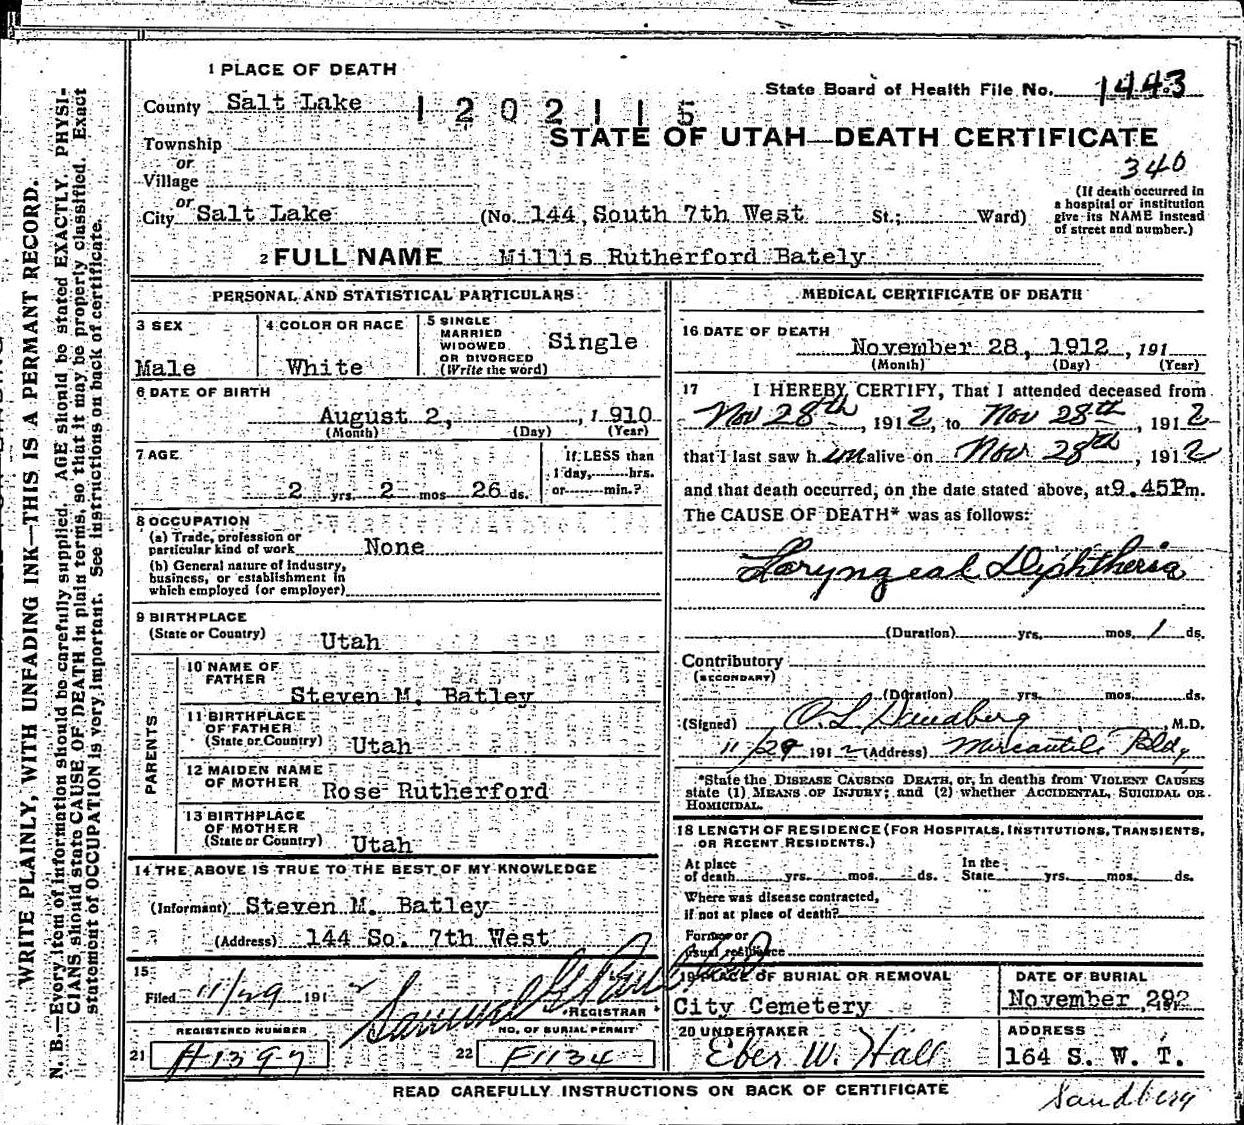 WRITE PLAINLY, WITH UNFADING INK—THIS IS A PERMANT RECORD.
N. B.—Every item of information should be carefully supplied. AGE should be stated EXACTLY. PHYSI-
CIANS should state CAUSE OF DEATH in plain terms, so that it may be properly classified. Exact
statement of OCCUPATION is very important. See instructions on back of certificate.
1 PLACE OF DEATH
State Board of Health File No. 1443
County Salt Lake 1202115
STATE OF UTAH—DEATH CERTIFICATE
Township
340
or
Village
(If death occurred in
a hospital or institution
give its NAME instead
of street and number.)
or
City Salt Lake (No. 144, South 7th West St.; Ward)
2 FULL NAME Willis Rutherford Bately
PERSONAL AND STATISTICAL PARTICULARS
3 SEX
Male
4 COLOR OR RACE
White
5 SINGLE
MARRIED
WIDOWED
OR DIVORCED
(Write the word)
Single
6 DATE OF BIRTH
August 2, 1910
(Month) (Day) (Year)
7 AGE
2 yrs. 2 mos 26 ds.
If LESS than
1 day, hrs.
or min.?
8 OCCUPATION
(a) Trade, profession or
particular kind of work None
(b) General nature of industry,
business, or establishment in
which employed (or employer)
9 BIRTHPLACE
(State or Country) Utah
PARENTS
10 NAME OF
FATHER
Steven M. Batley
11 BIRTHPLACE
OF FATHER
(State or Country) Utah
12 MAIDEN NAME
OF MOTHER
Rose Rutherford
13 BIRTHPLACE
OF MOTHER
(State or Country) Utah
14 THE ABOVE IS TRUE TO THE BEST OF MY KNOWLEDGE
(Informant) Steven M. Batley
(Address) 144 So. 7th West
15
Filed 11/29 1912
REGISTRAR
REGISTERED NUMBER
21 A1397
NO. OF BURIAL PERMIT
22 F1134
MEDICAL CERTIFICATE OF DEATH
16 DATE OF DEATH
November 28, 1912, 191
(Month) (Day) (Year)
17 I HEREBY CERTIFY, That I attended deceased from
Nov 28th, 1912, to Nov 28th, 1912
that I last saw him alive on Nov 28th, 1912
and that death occurred, on the date stated above, at 9.45Pm.
The CAUSE OF DEATH* was as follows:
Laryngeal Diphtheria
(Duration) yrs. mos. 1 ds.
Contributory
(SECONDARY)
(Duration) yrs. mos. ds.
(Signed) O. L. Sandberg M.D.
11/29 1912 (Address) Mercantile Bldg
*State the DISEASE CAUSING DEATH, or, in deaths from VIOLENT CAUSES
state (1) MEANS OF INJURY; and (2) whether ACCIDENTAL, SUICIDAL OR
HOMICIDAL.
18 LENGTH OF RESIDENCE (FOR HOSPITALS, INSTITUTIONS, TRANSIENTS,
OR RECENT RESIDENTS.)
At place
of death yrs. mos. ds.
In the
State yrs. mos. ds.
Where was disease contracted,
if not at place of death?
Former or
usual residence
19 PLACE OF BURIAL OR REMOVAL
City Cemetery
DATE OF BURIAL
November 292
20 UNDERTAKER
Eber W. Hall
ADDRESS
164 S. W. T.
READ CAREFULLY INSTRUCTIONS ON BACK OF CERTIFICATE
Sandberg